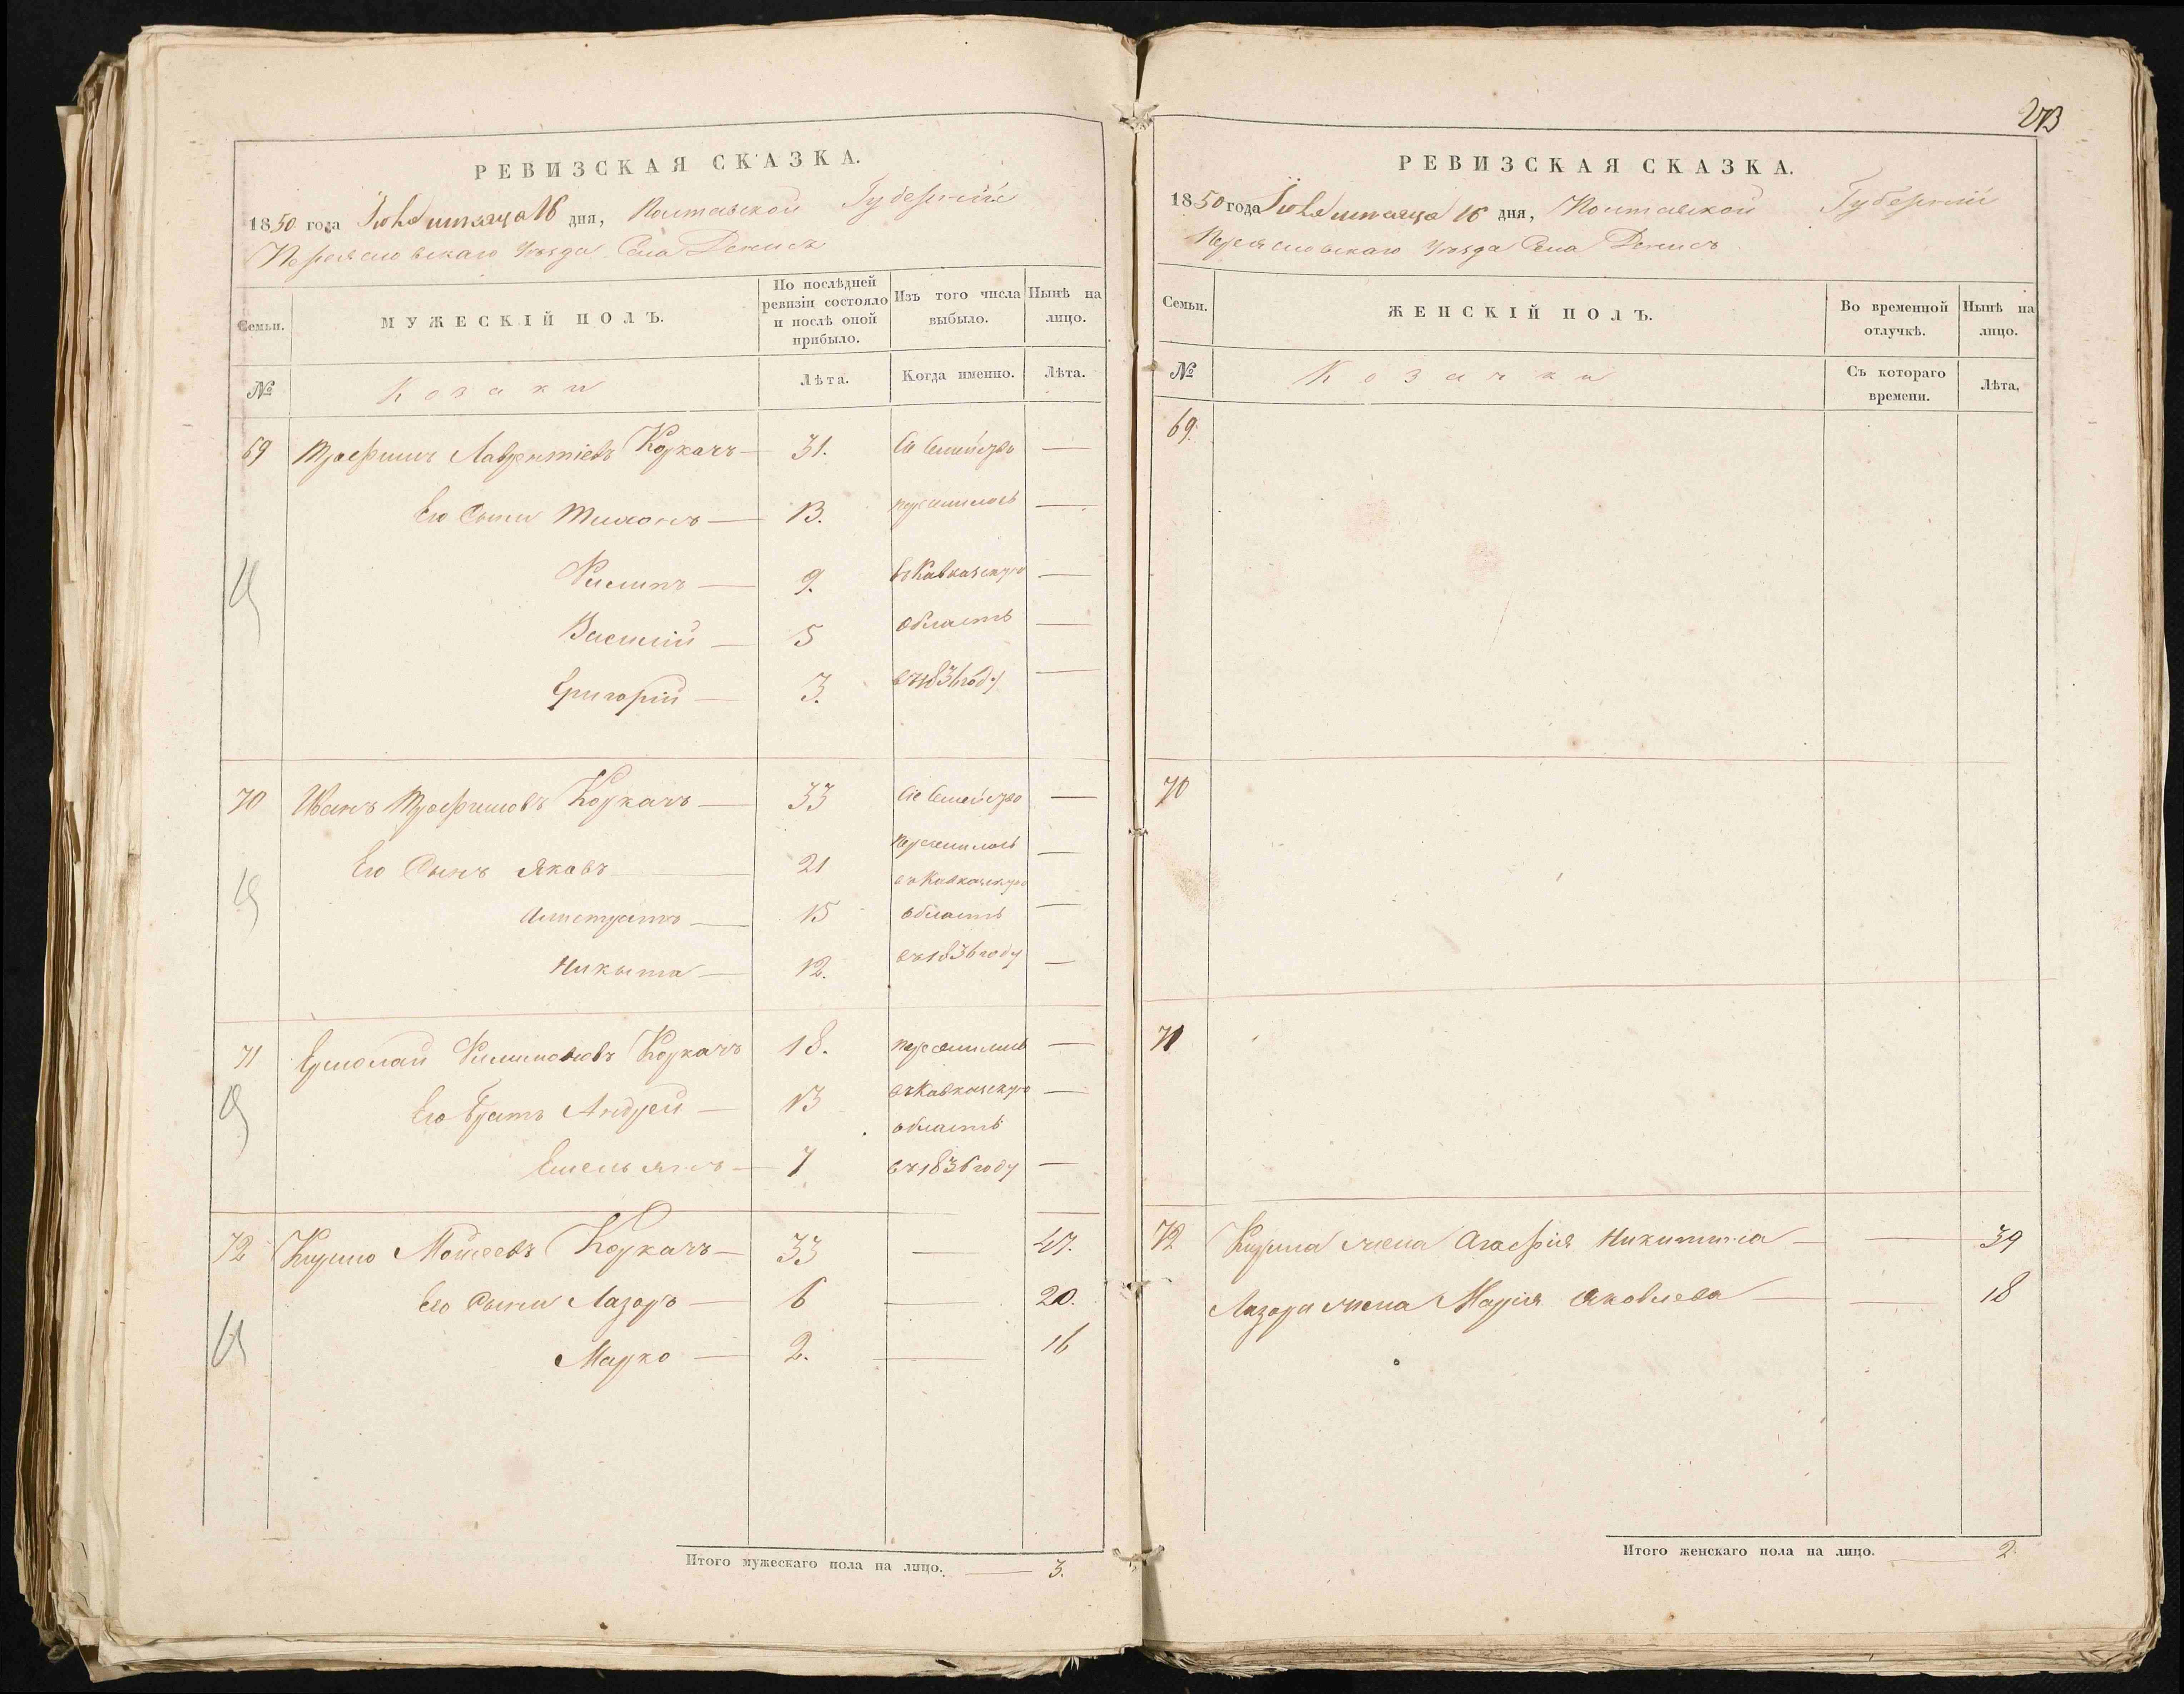 РЕВИЗСКАЯ СКАЗКА.
1850 года Іюля мѣсяца 16 дня, Полтавской Губерніи
Переяславскаго Уѣзда Села Денисъ
Семьи.
МУЖЕСКІЙ ПОЛЪ.
По послѣдней ревизіи состояло и послѣ оной прибыло.
Изъ того числа выбыло.
Нынѣ на лицо.
№
Козаки
Лѣта.
Когда именно.
Лѣта.
69 Трофимъ Лаврентіевъ Коркачъ — 31. Сіе Семейство —
Его Сыни Тихонъ — 13. переселилось —
Филипъ — 9. въ Кавказскую —
Василій — 5 область —
Григорій — 3. въ 1836 году —
70 Иванъ Трофимовъ Коркачъ — 33 Сіе Семейство —
Его Сынъ Яковъ 21 переселилось —
въ Кавказскую
15 область —
Никыта — 12. въ 1836 году —
71 Ермолай Филимоновъ Коркачъ 18. переселились —
Его Братъ Андрей — 13 въ Кавказскую —
область
Емельянъ — 7 въ 1836 году —
72 Кирило Мойсеевъ Коркачъ — 33 — 47.
Его Сыни Лазаръ — 6 — 20.
Марко — 2. — 16
Итого мужескаго пола на лицо. — 3.
273
РЕВИЗСКАЯ СКАЗКА.
1850 года Іюля мѣсяца 16 дня, Полтавской Губерніи
Переяславскаго Уѣзда Села Денисъ
Семьи.
ЖЕНСКІЙ ПОЛЪ.
Во временной отлучкѣ.
Нынѣ на лицо.
№
Козачки
Съ котораго времени.
Лѣта,
69.
70
71
72 Кирила жена Агафія Никитина — — 39
Лазаря жена Марія Яковлева — — 18
Итого женскаго пола на лицо. — 2.